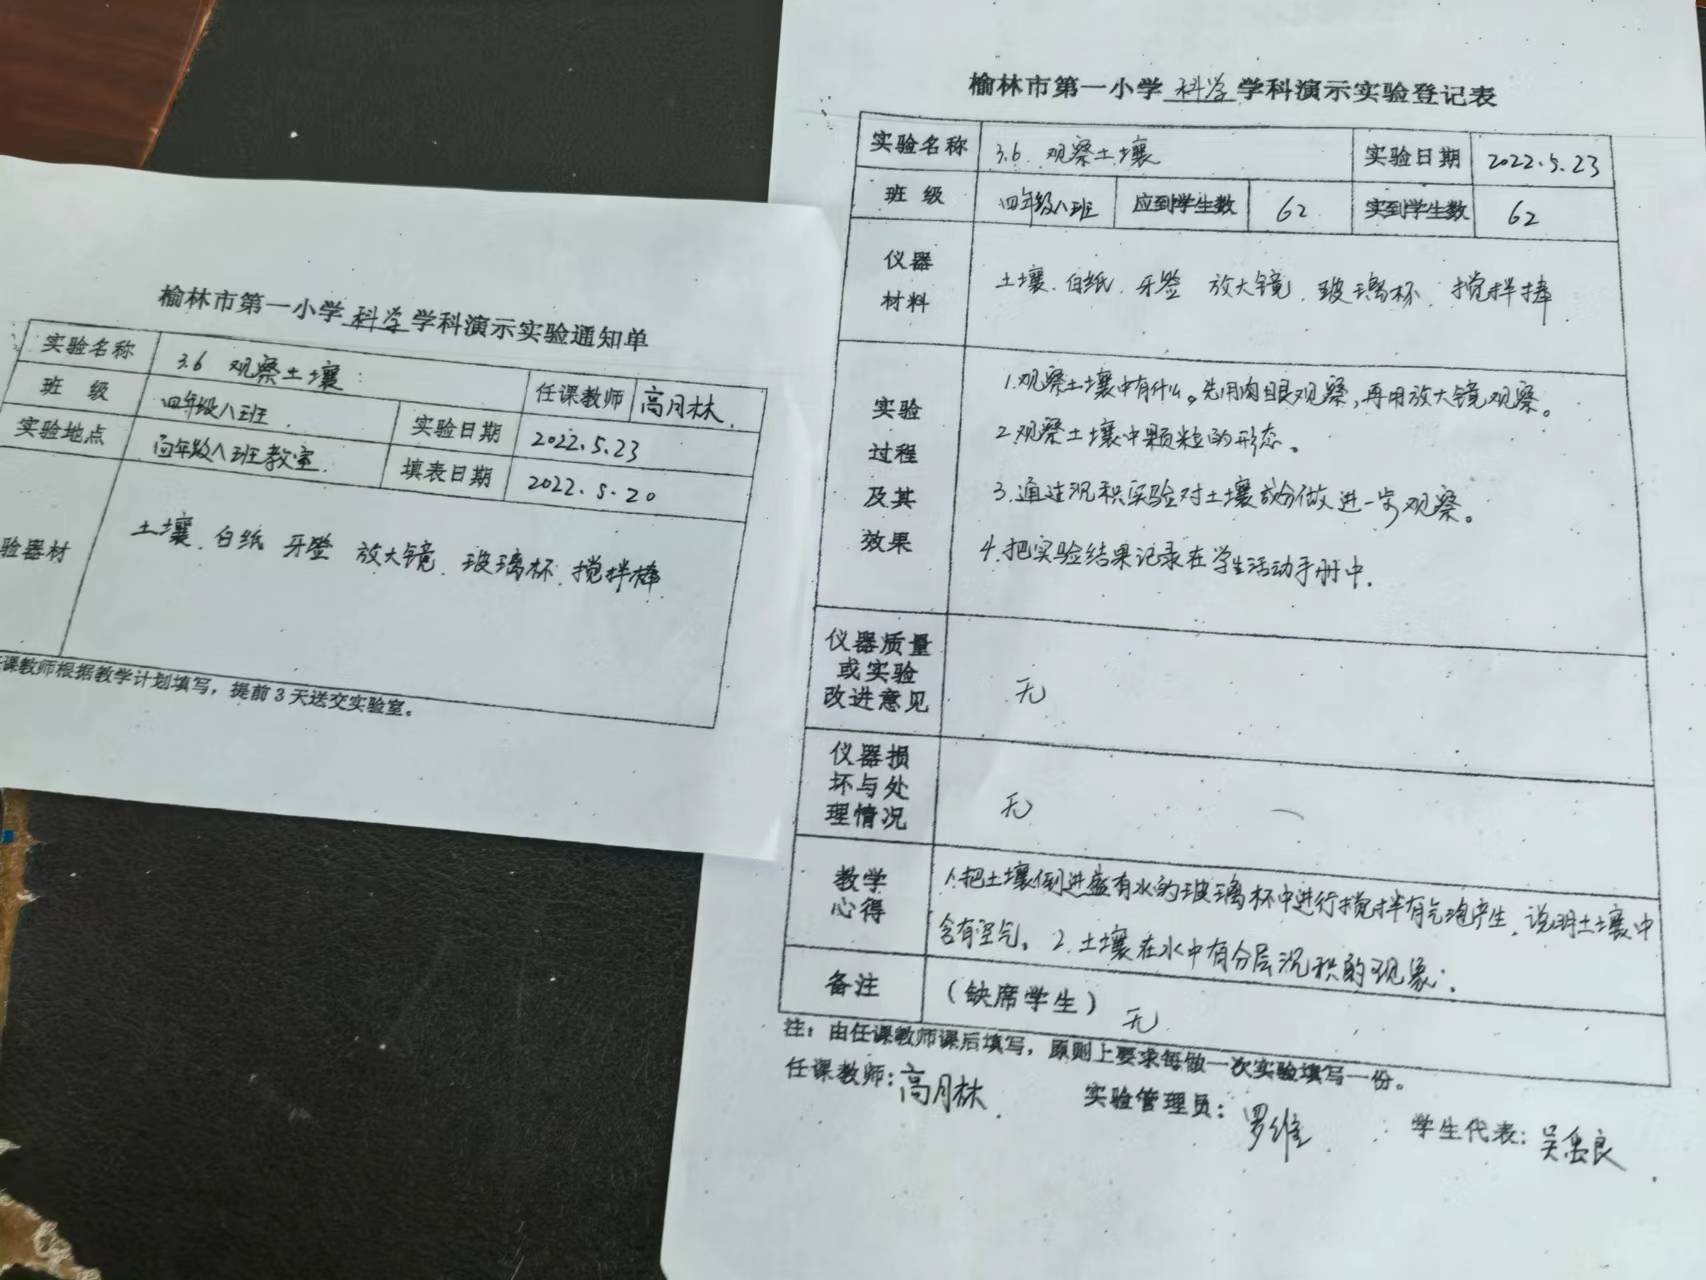 榆林市第一小学科学学科演示实验通知单
实验名称 3.6 观察土壤 任课教师 高月林
班 级 四年级八班 实验日期 2022.5.23
实验地点 四年级八班教室 填表日期 2022.5.20
验器材 土壤 白纸 牙签 放大镜 玻璃杯 搅拌棒
课教师根据教学计划填写，提前3天送交实验室。
榆林市第一小学科学学科演示实验登记表
实验名称 3.6 观察土壤 实验日期 2022.5.23
班 级 四年级八班 应到学生数 62 实到学生数 62
仪器
材料
土壤 白纸 牙签 放大镜 玻璃杯 搅拌棒
实验
过程
及其
效果
1.观察土壤中有什么。先用肉眼观察，再用放大镜观察。
2.观察土壤中颗粒的形态。
3.通过沉积实验对土壤成分做进一步观察。
4.把实验结果记录在学生活动手册中.
仪器质量
或实验
改进意见
无
仪器损
坏与处
理情况
无
教学
心得
1.把土壤倒进盛有水的玻璃杯中进行搅拌有气泡产生，说明土壤中
含有空气。2.土壤在水中有分层沉积的现象；
备注 （缺席学生） 无
注：由任课教师课后填写，原则上要求每做一次实验填写一份。
任课教师：高月林 实验管理员：罗维 学生代表：吴 良